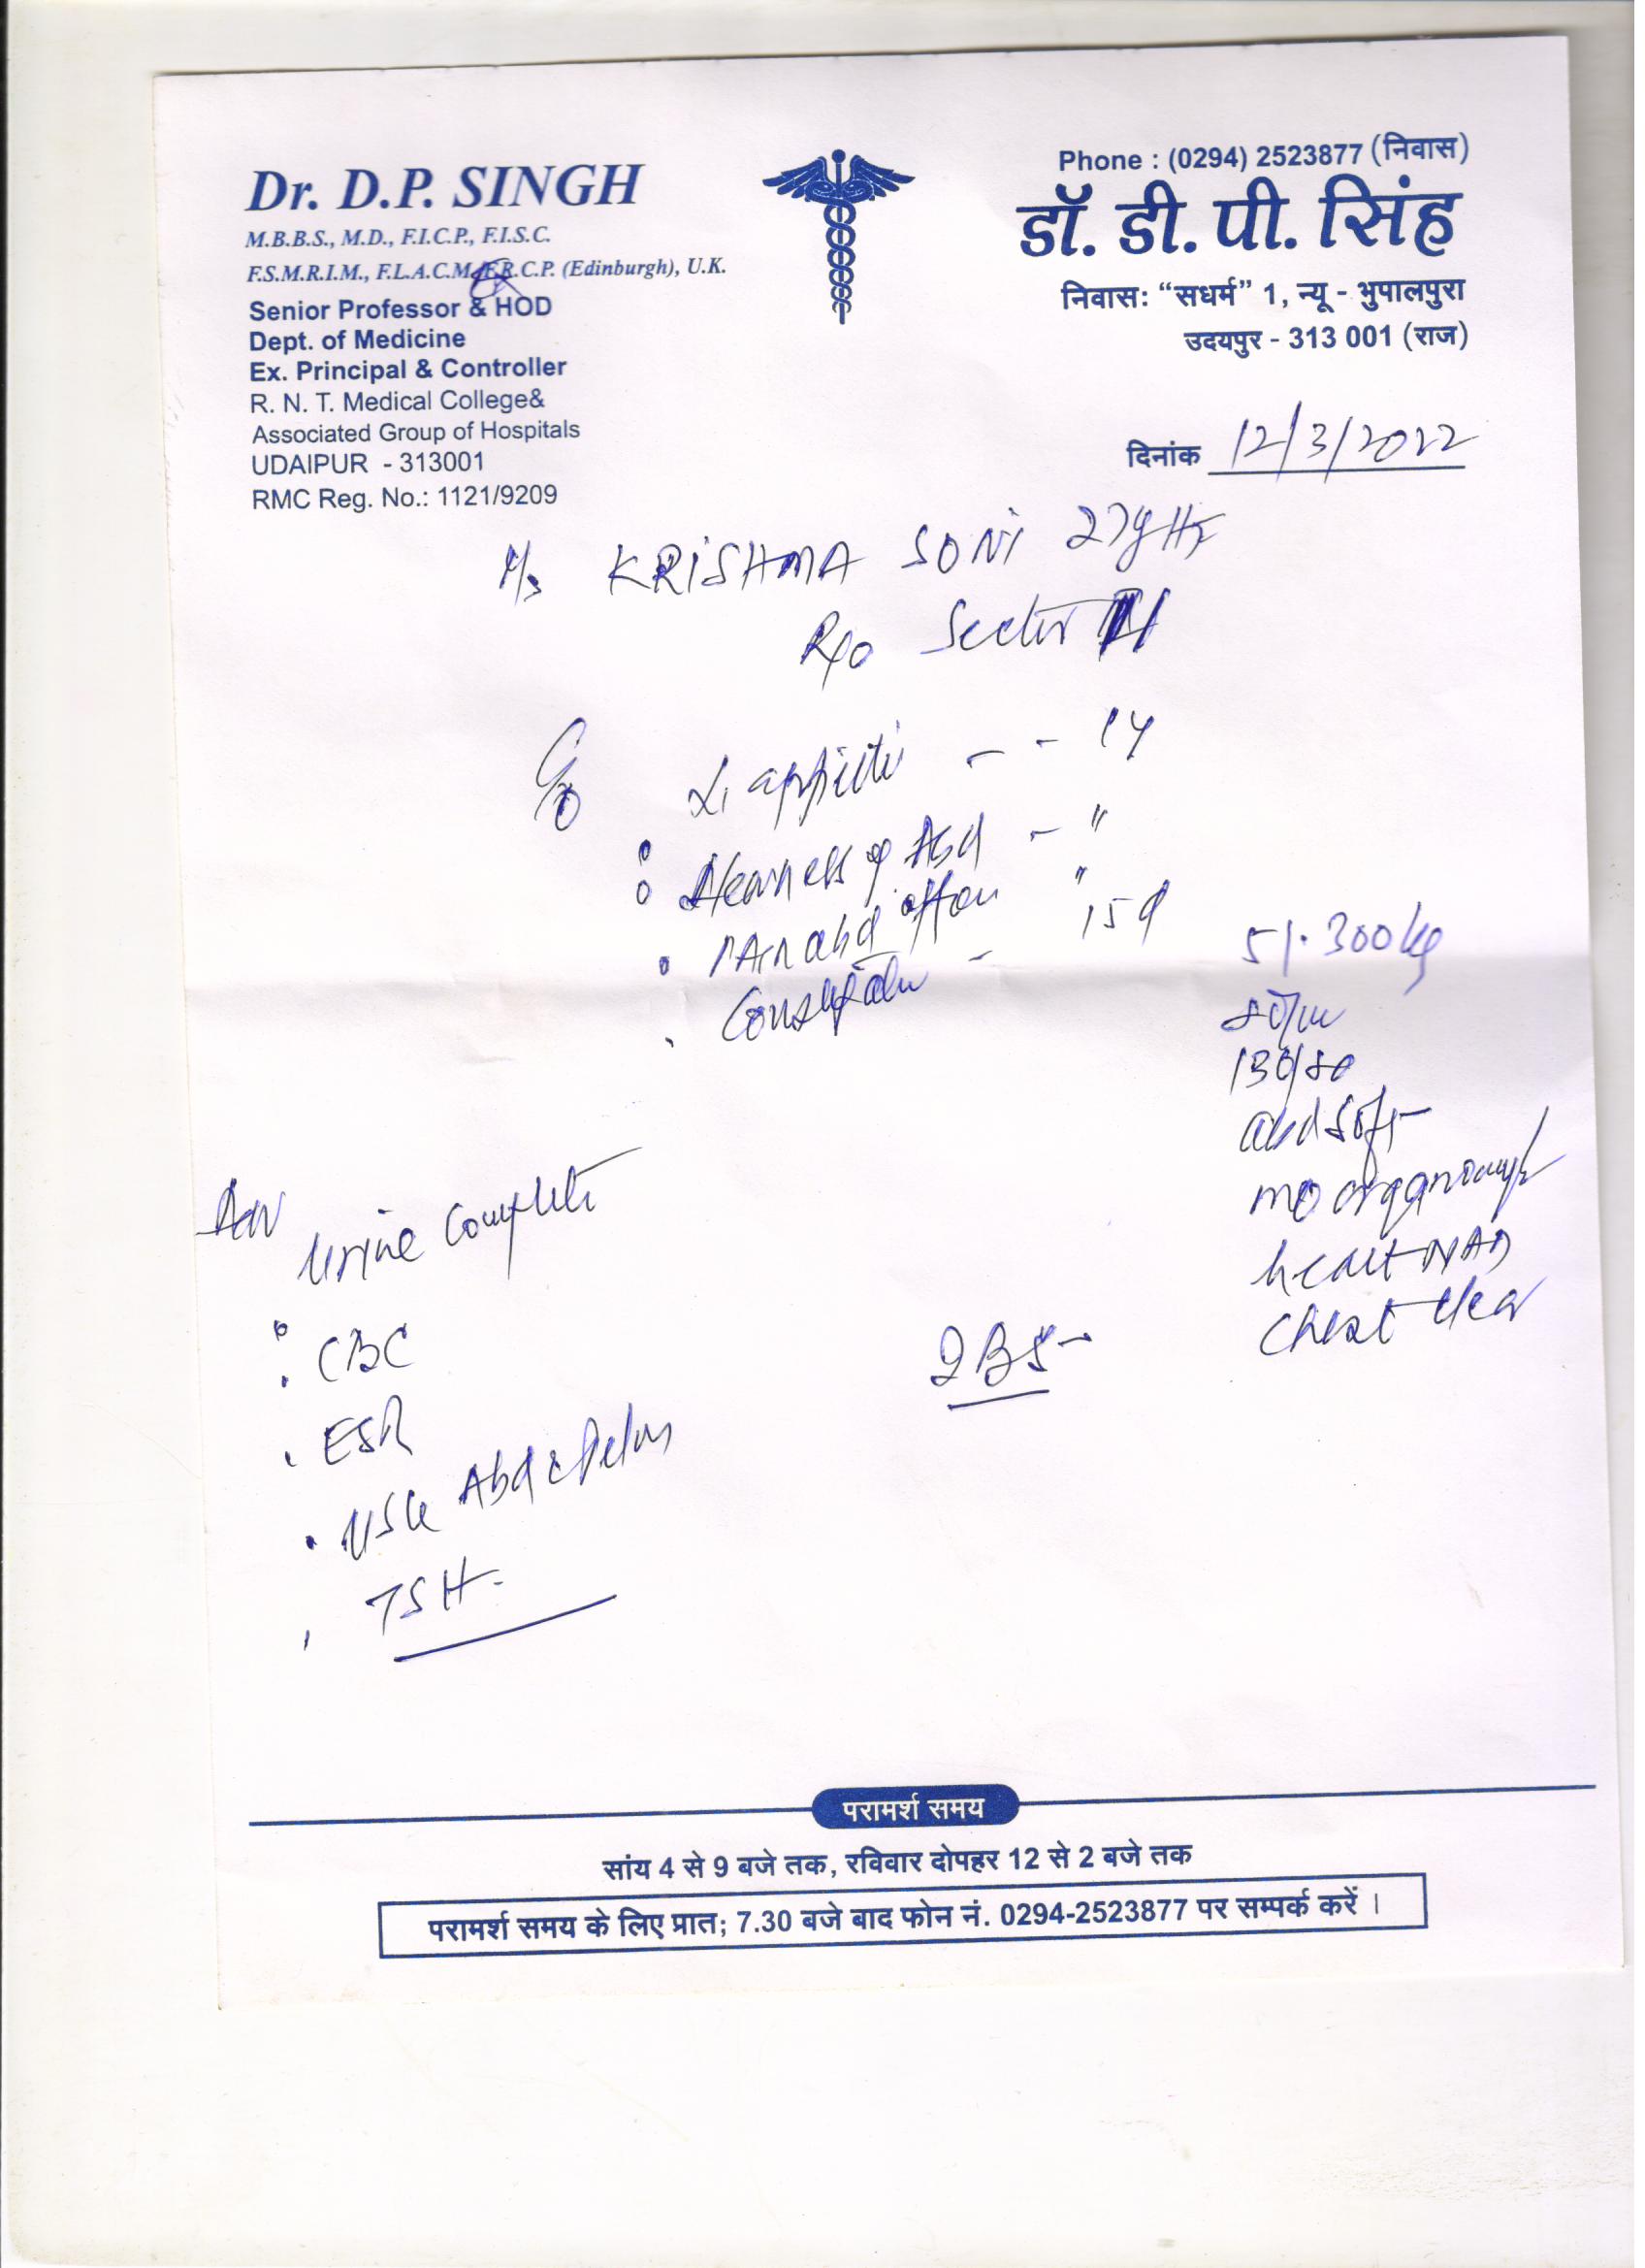 Dr. D.P. SINGH
M.B.B.S., M.D., F.I.C.P., F.I.S.C.
F.S.M.R.I.M., F.L.A.C.M., F.R.C.P. (Edinburgh), U.K.
Senior Professor & HOD
Dept. of Medicine
Ex. Principal & Controller
R. N. T. Medical College&
Associated Group of Hospitals
UDAIPUR - 313001
RMC Reg. No.: 1121/9209
Phone : (0294) 2523877 (निवास)
डॉ. डी. पी. सिंह
निवास: “सधर्म” 1, न्यू - भुपालपुरा
उदयपुर - 313 001 (राज)
दिनांक 12/3/2022
KRISHMA SONI 27
R/o Sector
C/o L. appitite - - 1Y
Heavness of Abd - "
Pain abd "
Constipation - 15d
51.300 kg
80/m
130/80
abd soft
no organomegaly
heart NAD
Chest clear
Adv
Urine Complete
CBC
ESR
USG Abd & Pelvis
TSH
IBS
परामर्श समय
सांय 4 से 9 बजे तक, रविवार दोपहर 12 से 2 बजे तक
परामर्श समय के लिए प्रात; 7.30 बजे बाद फोन नं. 0294-2523877 पर सम्पर्क करें ।